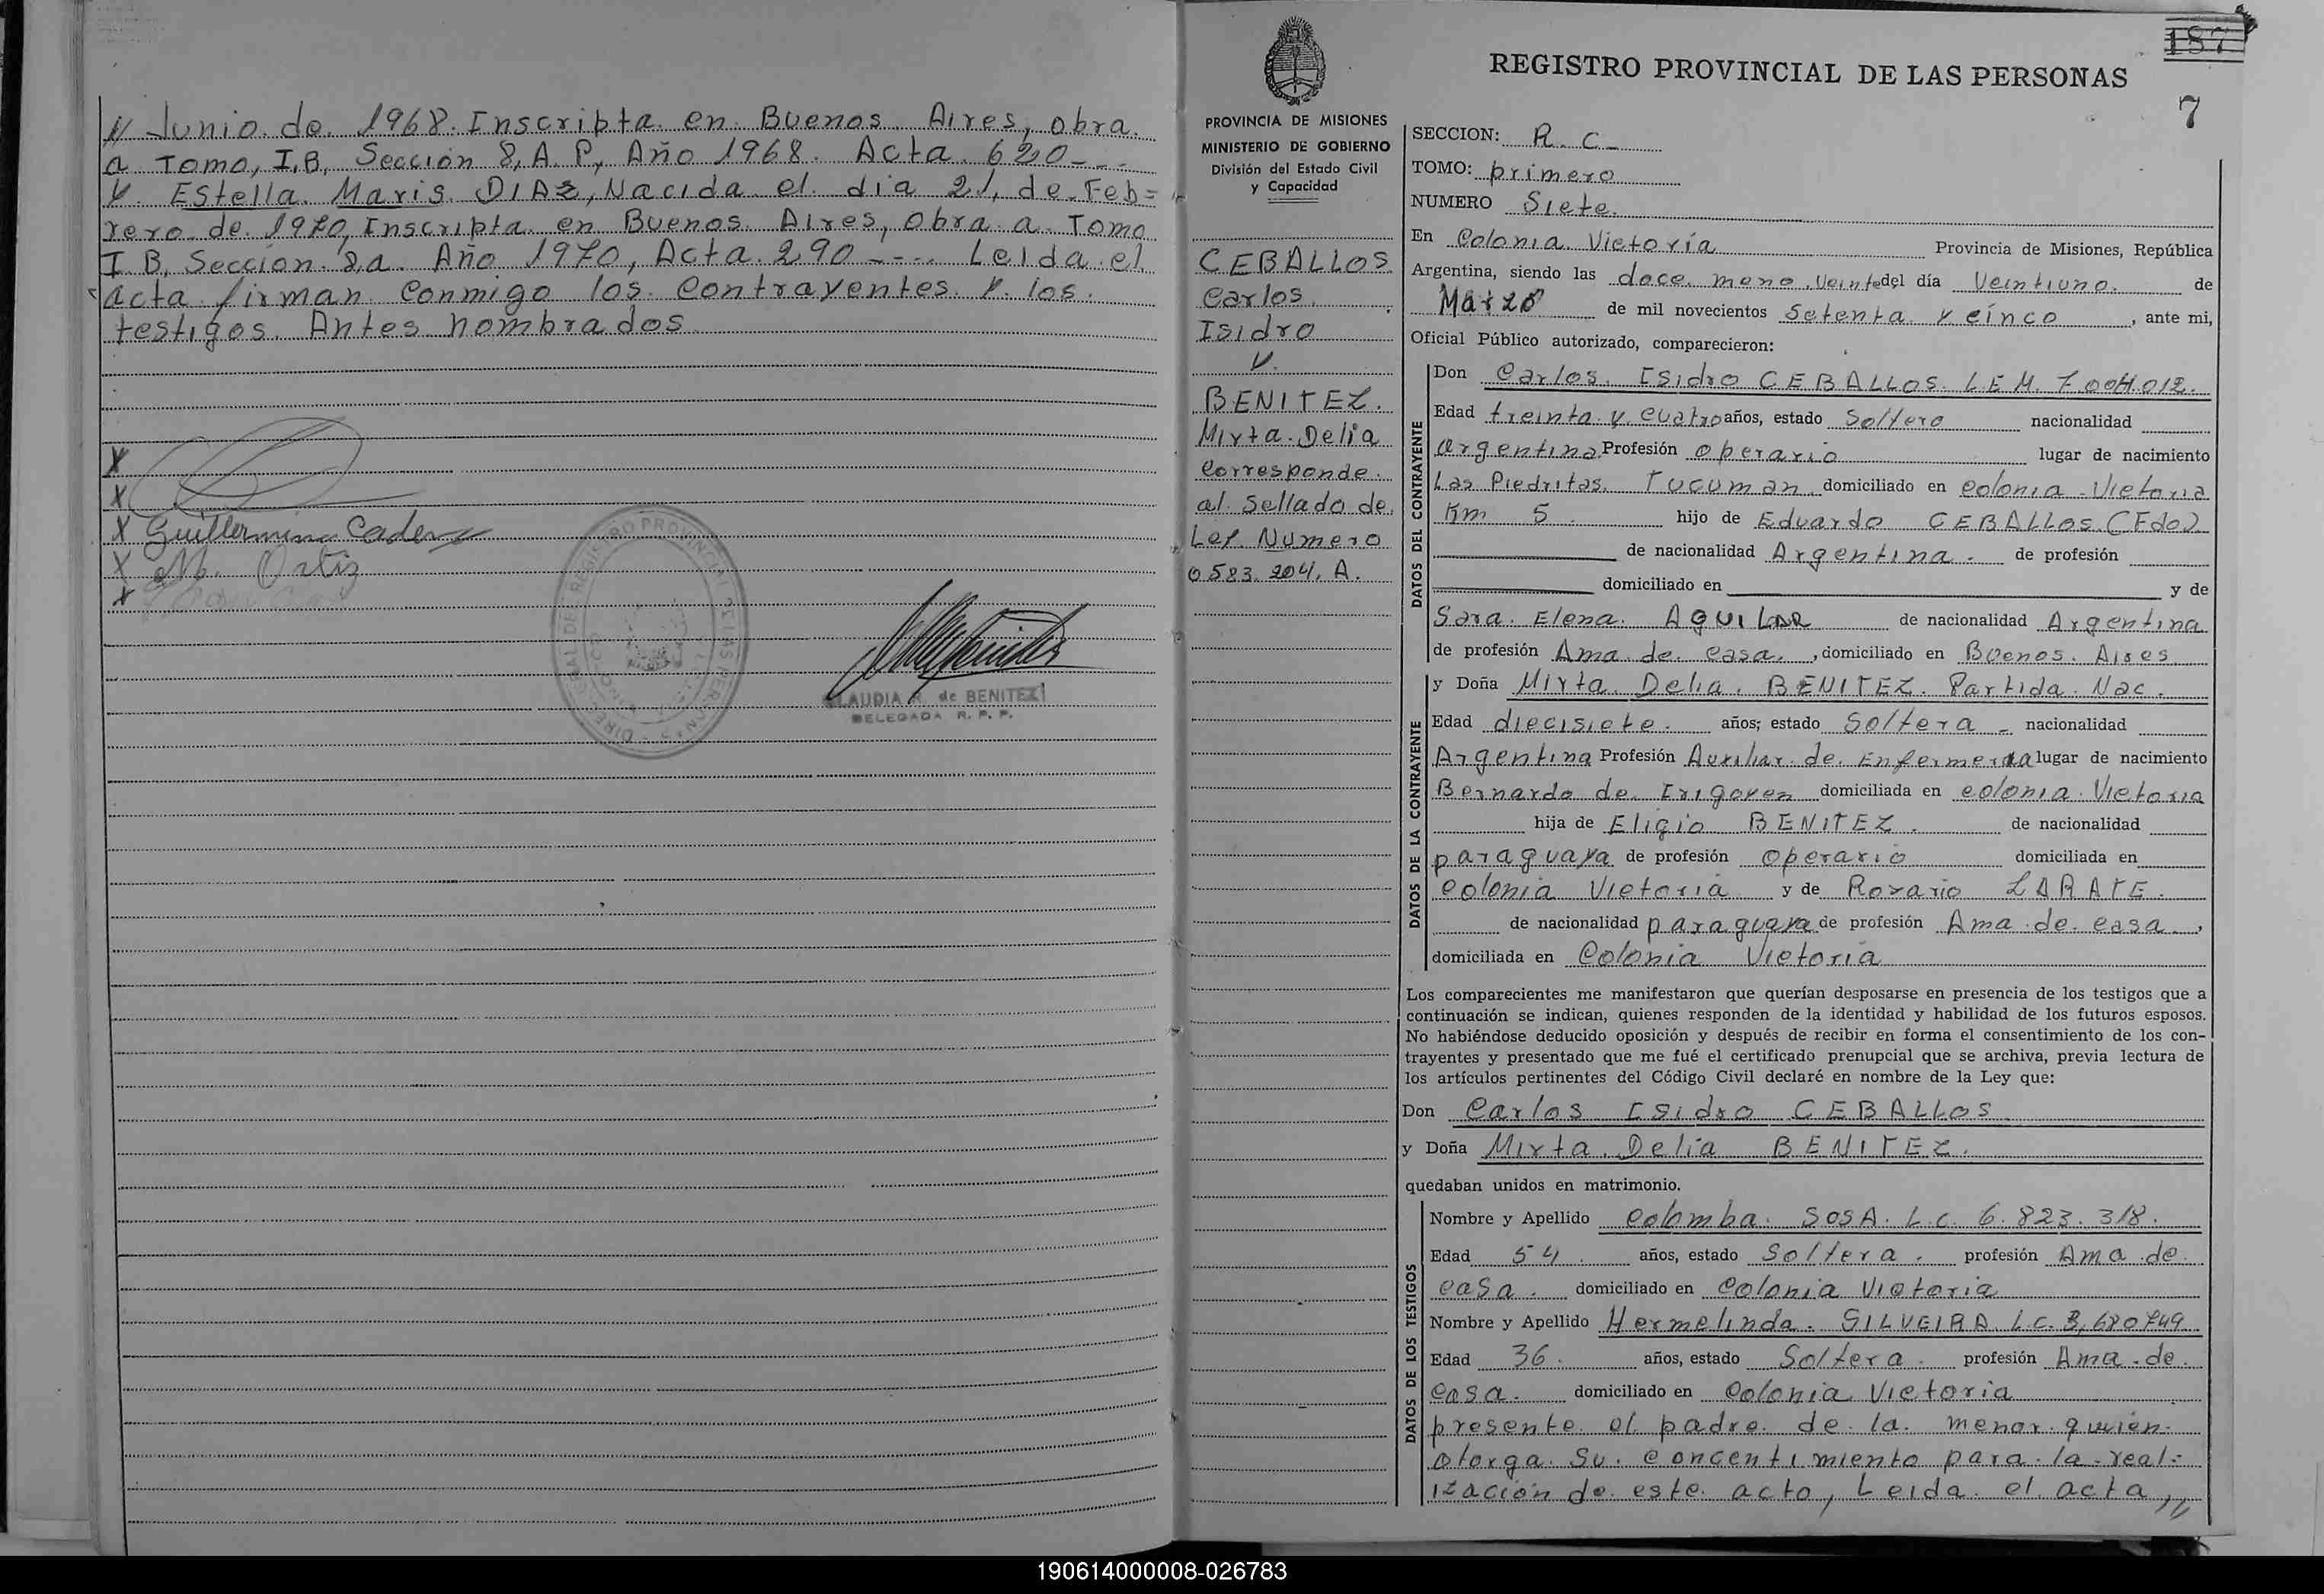 // Junio. de. 1968. Inscripta. en. Buenos. Aires, obra.
a Tomo, I.B, Sección 8, A. P, Año 1968. Acta. 620---
y. EStella. Maris. DIAZ, Nacida el. dia 21, de-Feb=
rero. de. 1970, Inscripta. en Buenos. Aires, obra. a. Tomo
I B, Sección. 8,a. Año 1970, Acta. 290 ---- Leida. el.
acta. firman. conmigo los. contrayentes. y. los.
testigos. Antes nombrados
X
X
X Guillermina Caden
X M. Ortiz
X
CLAUDIA R. de BENITEZ
DELEGADA R. P. P.
PROVINCIA DE MISIONES
MINISTERIO DE GOBIERNO
División del Estado Civil
y Capacidad
CEBALLOS
Carlos.
Isidro
y.
BENITEZ.
Mirta. Delia
Corresponde.
al. Sellado de.
Ley. Numero
0583.204. A.
187
REGISTRO PROVINCIAL DE LAS PERSONAS
7
SECCION: R. C.
TOMO: primero
NUMERO Siete.
En Colonia Victoria Provincia de Misiones, República
Argentina, siendo las doce. meno. veinte del día Veintiuno. de
Marzo de mil novecientos Setenta y cinco, ante mi,
Oficial Público autorizado, comparecieron:
DATOS DEL CONTRAYENTE
Don Carlos. Isidro CEBALLOS. L E M. 7.004.012.
Edad treinta y cuatro años, estado Soltero nacionalidad
argentina. Profesión operario lugar de nacimiento
Las Piedritas. Tucuman domiciliado en colonia Victoria
Km 5. hijo de Eduardo CEBALLOS (Fdo)
de nacionalidad Argentina. de profesión
domiciliado en y de
Sara. Elena. AGUILAR de nacionalidad Argentina
de profesión Ama. de. casa., domiciliado en Buenos. Aires
DATOS DE LA CONTRAYENTE
y Doña Mirta. Delia. BENITEZ. Partida. Nac.
Edad diecisiete. años; estado Soltera nacionalidad
Argentina Profesión Auxiliar. de. Enfermeria lugar de nacimiento
Bernardo de. Irigoyen domiciliada en colonia. Victoria
hija de Eligio BENITEZ. de nacionalidad
paraguaya de profesión operario domiciliada en
colonia Victoria y de Rosario ZARATE.
de nacionalidad paraguaya de profesión Ama. de. casa.,
domiciliada en Colonia Victoria
Los comparecientes me manifestaron que querían desposarse en presencia de los testigos que a
continuación se indican, quienes responden de la identidad y habilidad de los futuros esposos.
No habiéndose deducido oposición y después de recibir en forma el consentimiento de los con-
trayentes y presentado que me fué el certificado prenupcial que se archiva, previa lectura de
los artículos pertinentes del Código Civil declaré en nombre de la Ley que:
Don Carlos Isidro CEBALLOS
y Doña Mirta. Delia BENITEZ.
quedaban unidos en matrimonio.
DATOS DE LOS TESTIGOS
Nombre y Apellido Colomba. SOSA. L.C. 6.823.318.
Edad 54. años, estado Soltera. profesión Ama de.
casa. domiciliado en Colonia Victoria
Nombre y Apellido Hermelinda. SILVEIRA L.C. 3,680749
Edad 36. años, estado Soltera. profesión Ama. de.
casa. domiciliado en Colonia Victoria
presente. el padre. de la. menor. quien.
otorga. Su. concentimiento para. la. real=
ización de. este acto, Leida. el. acta, //
190614000008-026783